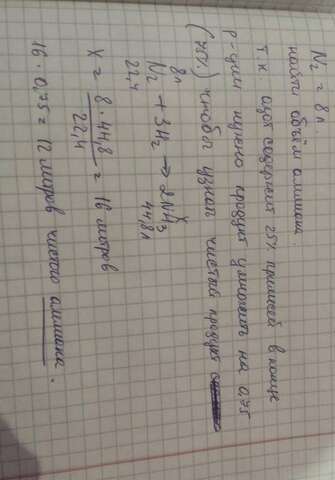 N₂ = 8 л
найти объём аммиака
т к азот содержит 25% примесей в конце
р-ции нужно продукт умножить на 0.75
(75%) чтобы узнать чистый продукт
8л x
N₂ + 3H₂ → 2NH₃
22,4 44,8л
X = 8 · 44,8 / 22,4 = 16 литров
16 · 0,75 = 12 литров чистого аммиака.